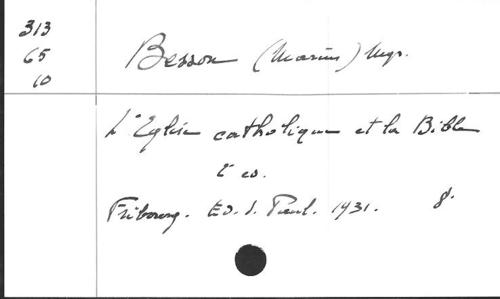 313
65
10
Besson (Marius) Mgr.
L'Eglise catholique et la Bible
2 ed.
Fribourg. Ed. S. Paul. 1931. 8.